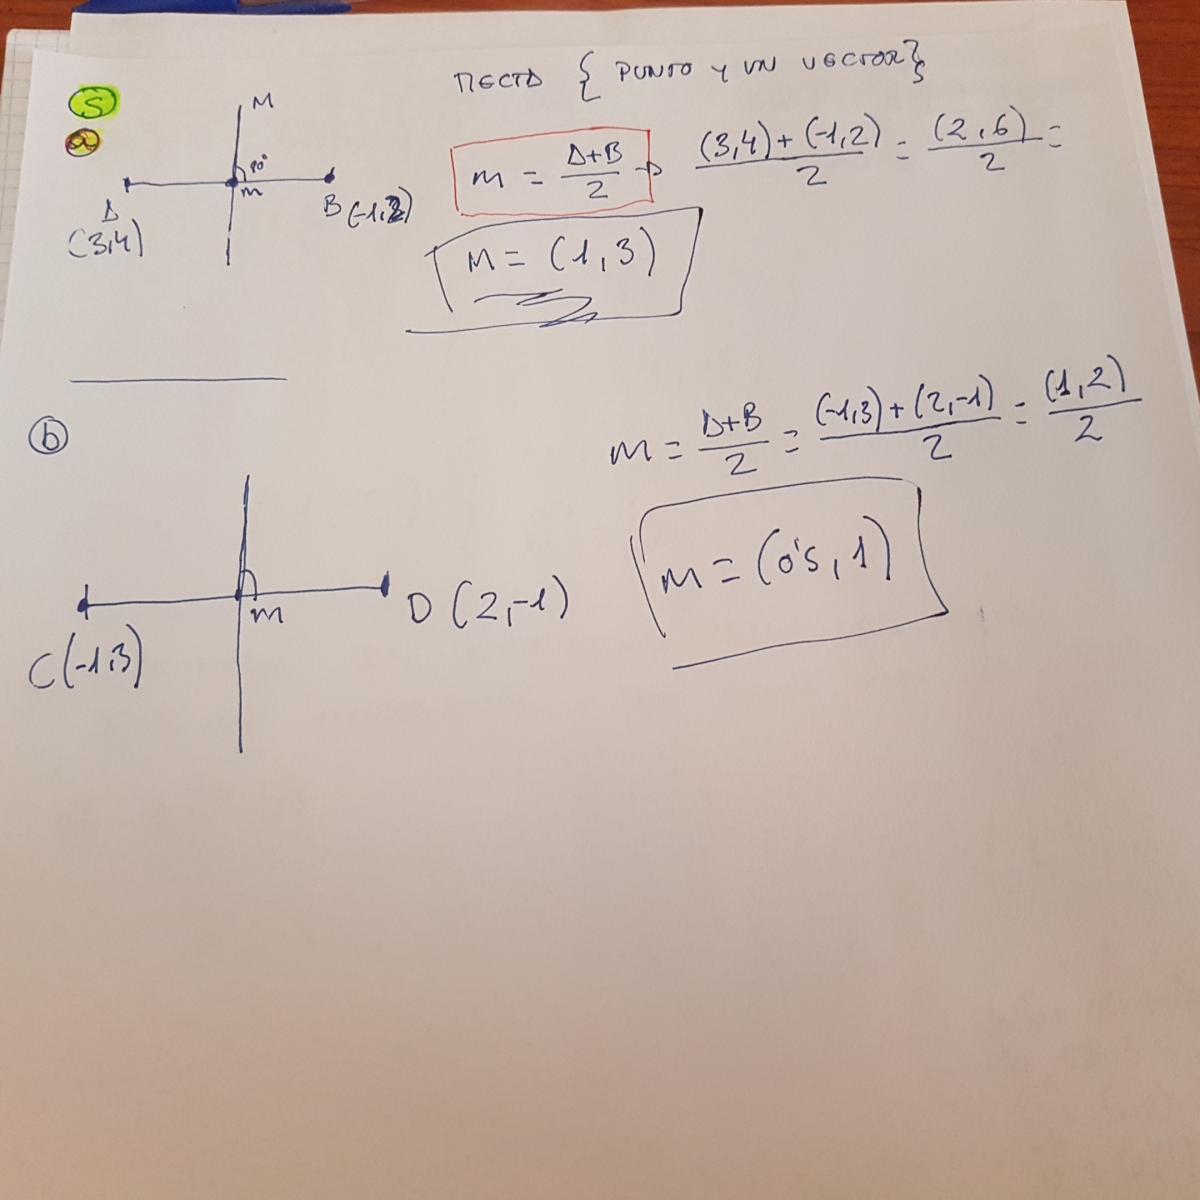 RECTA { PUNTO Y UN VECTOR }
5
a
M
90°
m
A
(3,4)
B (-1,2)
m = A+B / 2 → (3,4) + (-1,2) / 2 = (2,6) / 2 =
M = (1,3)
b
m = A+B / 2 = (-1,3) + (2,-1) / 2 = (1,2) / 2
m = (0's, 1)
m
C (-1,3)
D (2,-1)